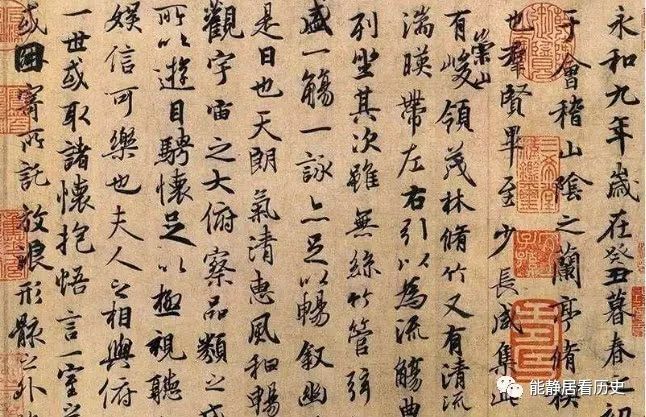 永和九年歲在癸丑暮春之初
于會稽山陰之蘭亭脩禊
也羣賢畢至少長咸集此
有崇山峻領茂林脩竹又有清流
湍暎帶左右引以為流觴曲
列坐其次雖無絲竹管弦
盛一觴一詠亦足以暢敘幽
是日也天朗氣清惠風和暢
觀宇宙之大俯察品類之
所以遊目騁懷足以極視聽
娛信可樂也夫人之相與俯
一世或取諸懷抱悟言一室之
或因寄所託放浪形骸之外
能静居看历史